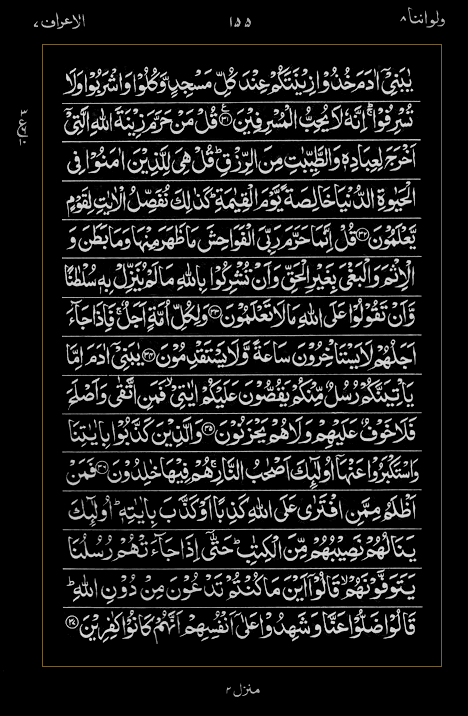 ولواننا ٨
١٥٥
الاعراف ٧
يٰبَنِيْٓ اٰدَمَ خُذُوْا زِيْنَتَكُمْ عِنْدَ كُلِّ مَسْجِدٍ وَّكُلُوْا وَاشْرَبُوْا وَلَا
تُسْرِفُوْا ۚ اِنَّهٗ لَا يُحِبُّ الْمُسْرِفِيْنَ ﴿٣١﴾ قُلْ مَنْ حَرَّمَ زِيْنَةَ اللّٰهِ الَّتِيْٓ
اَخْرَجَ لِعِبَادِهٖ وَالطَّيِّبٰتِ مِنَ الرِّزْقِ ؕ قُلْ هِيَ لِلَّذِيْنَ اٰمَنُوْا فِي
الْحَيٰوةِ الدُّنْيَا خَالِصَةً يَّوْمَ الْقِيٰمَةِ ؕ كَذٰلِكَ نُفَصِّلُ الْاٰيٰتِ لِقَوْمٍ
يَّعْلَمُوْنَ ﴿٣٢﴾ قُلْ اِنَّمَا حَرَّمَ رَبِّيَ الْفَوَاحِشَ مَا ظَهَرَ مِنْهَا وَمَا بَطَنَ وَ
الْاِثْمَ وَالْبَغْيَ بِغَيْرِ الْحَقِّ وَاَنْ تُشْرِكُوْا بِاللّٰهِ مَا لَمْ يُنَزِّلْ بِهٖ سُلْطٰنًا
وَّاَنْ تَقُوْلُوْا عَلَى اللّٰهِ مَا لَا تَعْلَمُوْنَ ﴿٣٣﴾ وَلِكُلِّ اُمَّةٍ اَجَلٌ ۚ فَاِذَا جَآءَ
اَجَلُهُمْ لَا يَسْتَاْخِرُوْنَ سَاعَةً وَّلَا يَسْتَقْدِمُوْنَ ﴿٣٤﴾ يٰبَنِيْٓ اٰدَمَ اِمَّا
يَاْتِيَنَّكُمْ رُسُلٌ مِّنْكُمْ يَقُصُّوْنَ عَلَيْكُمْ اٰيٰتِيْ ۙ فَمَنِ اتَّقٰى وَاَصْلَحَ
فَلَا خَوْفٌ عَلَيْهِمْ وَلَا هُمْ يَحْزَنُوْنَ ﴿٣٥﴾ وَالَّذِيْنَ كَذَّبُوْا بِاٰيٰتِنَا
وَاسْتَكْبَرُوْا عَنْهَآ اُولٰٓئِكَ اَصْحٰبُ النَّارِ ۚ هُمْ فِيْهَا خٰلِدُوْنَ ﴿٣٦﴾ فَمَنْ
اَظْلَمُ مِمَّنِ افْتَرٰى عَلَى اللّٰهِ كَذِبًا اَوْ كَذَّبَ بِاٰيٰتِهٖ ؕ اُولٰٓئِكَ
يَنَالُهُمْ نَصِيْبُهُمْ مِّنَ الْكِتٰبِ ؕ حَتّٰىٓ اِذَا جَآءَتْهُمْ رُسُلُنَا
يَتَوَفَّوْنَهُمْ ۙ قَالُوْٓا اَيْنَ مَا كُنْتُمْ تَدْعُوْنَ مِنْ دُوْنِ اللّٰهِ ؕ
قَالُوْا ضَلُّوْا عَنَّا وَشَهِدُوْا عَلٰٓى اَنْفُسِهِمْ اَنَّهُمْ كَانُوْا كٰفِرِيْنَ ﴿٣٧﴾
منزل ٢